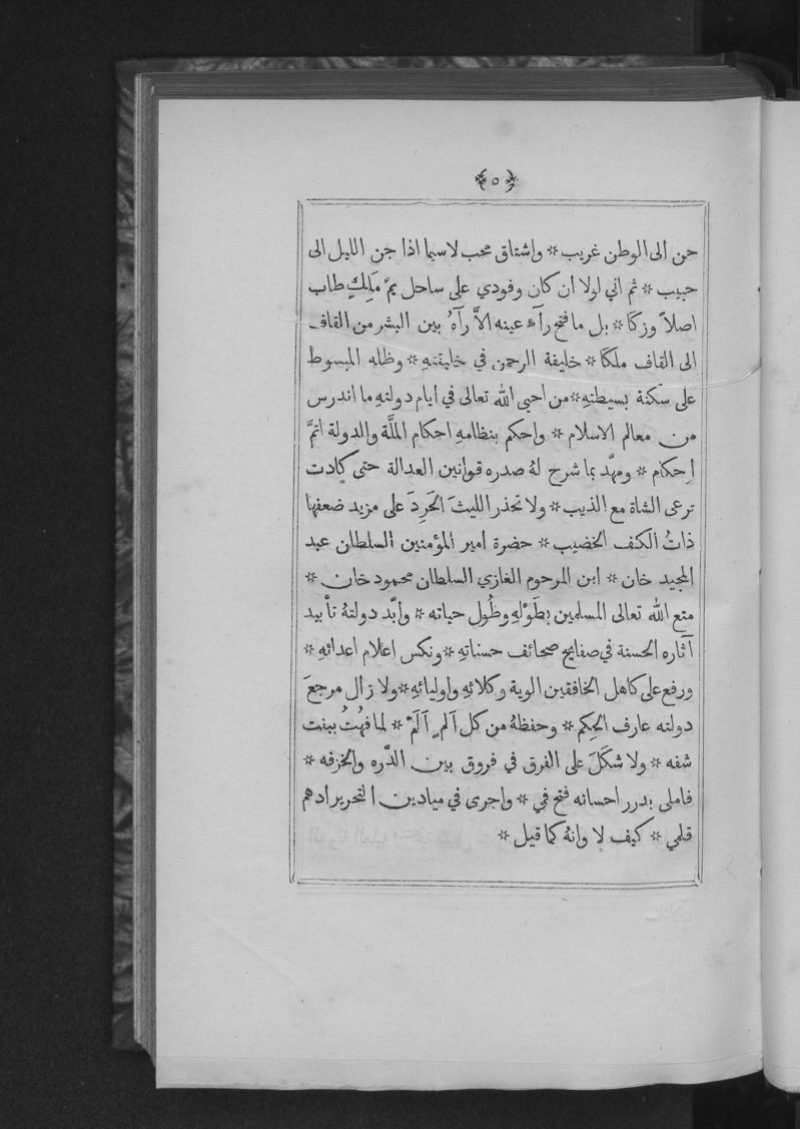 ﴿٥﴾
حن الى الوطن غريب * واشتاق محب لاسيما اذا جن الليل الى
حبيب * ثم اني لولا ان كان وفودي على ساحل يمّ مَلِكٍ طاب
اصلاً وزكا * بل ما فتح رآء عينه الاَّ رآهُ بين البشر من القاف
الى القاف ملكًا * خليفة الرحمن في خليقتهِ * وظله المبسوط
على سكنة بسيطتهِ * من احيى الله تعالى في ايام دولتهِ ما اندرس
من معالم الاسلام * واحكم بنظامهِ احكام الملَّة والدولة اتمَّ
اِحكام * ومهّد بما شرح لهُ صدره قوانين العدالة حتى كادت
ترعى الشاة مع الذيب * ولا تحذر الليثَ الحَرِدَ على مزيد ضعفها
ذاتُ الكف الخضيب * حضرة امير المؤمنين السلطان عبد
المجيد خان * ابن المرحوم الغازي السلطان محمود خان *
متع الله تعالى المسلمين بطَوْلِهِ وطُول حياته * وأبّد دولتهُ تأبيد
آثاره الحسنة في صفايح صحائف حسناتهِ * ونكس اعلام اعدائهِ *
ورفع على كاهل الخافقين الوية وكلائهِ واوليائهِ * ولا زال مرجعَ
دولته عارف الحِكم * وحفظهُ من كل آلمٍ آلَمْ * لما فهُتُ ببنت
شفه * ولا شكَلَ على الفرق في فروق بين الدّره والخزفه *
فاملى بدرر احسانه فتح في * واجرى في ميادين التحرير ادهم
قلمي * كيف لا وانهُ كما قيل *